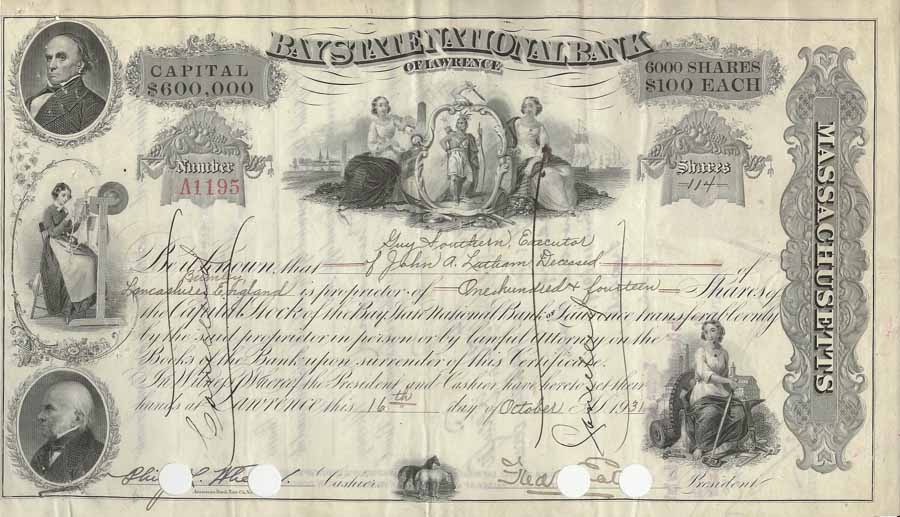 BAY STATE NATIONAL BANK
OF LAWRENCE
CAPITAL
$600,000
6000 SHARES
$100 EACH
Number
A1195
Shares
114
MASSACHUSETTS
Guy Southern, Executor
Be it known, that of John A. Latham Deceased of
Lancashire England is proprietor of One hundred & fourteen Shares of
the Capital Stock of the Bay State National Bank of Lawrence transferable only
by the said proprietor in person or by Lawful Attorney on the
Books of the Bank upon surrender of this Certificate.
In Witness Whereof the President and Cashier have hereto set their
hands at Lawrence this 16th day of October A.D. 1931
Cashier
President
American Bank Note Co.
Cancelled
Cancelled